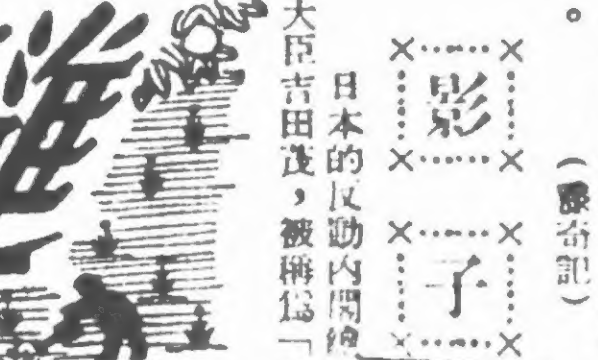 。
（奇記）
影子
日本的反動內閣總
大臣吉田茂，被稱爲「